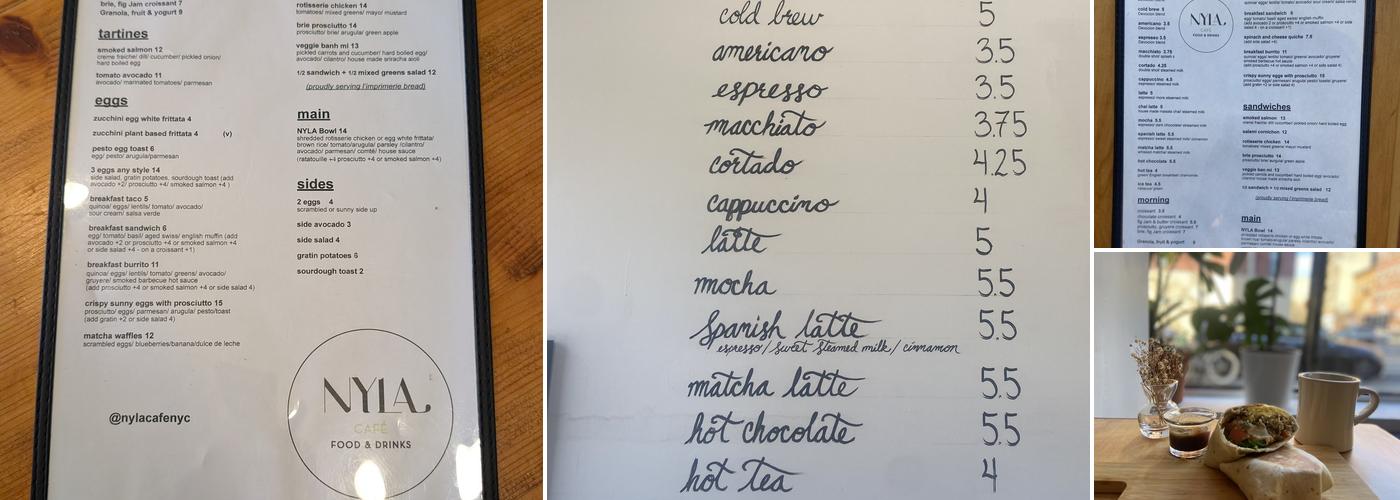 brie, fig Jam croissant 7
Granola, fruit & yogurt 9
tartines
smoked salmon 12
creme fraiche/ dill/ cucumber/ pickled onion/
hard boiled egg
tomato avocado 11
avocado/ marinated tomatoes/ parmesan
eggs
zucchini egg white frittata 4
zucchini plant based frittata 4 (v)
pesto egg toast 6
egg/ pesto/ arugula/parmesan
3 eggs any style 14
side salad, gratin potatoes, sourdough toast (add
avocado +2/ prosciutto +4/ smoked salmon +4 )
breakfast taco 5
quinoa/ eggs/ lentils/ tomato/ avocado/
sour cream/ salsa verde
breakfast sandwich 6
egg/ tomato/ basil/ aged swiss/ english muffin (add
avocado +2 or prosciutto +4 or smoked salmon +4
or side salad +4 - on a croissant +1)
breakfast burrito 11
quinoa/ eggs/ lentils/ tomato/ greens/ avocado/
gruyere/ smoked barbecue hot sauce
(add prosciutto +4 or smoked salmon +4 or side salad +4)
crispy sunny eggs with prosciutto 15
prosciutto/ eggs/ parmesan/ arugula/ pesto/toast
(add gratin +2 or side salad 4)
matcha waffles 12
scrambled eggs/ blueberries/banana/dulce de leche
@nylacafenyc
rotisserie chicken 14
tomatoes/ mixed greens/ mayo/ mustard
brie prosciutto 14
prosciutto/ brie/ arugula/ green apple
veggie banh mi 13
pickled carrots and cucumber/ hard boiled egg/
avocado/ cilantro/ house made sriracha aioli
1/2 sandwich + 1/2 mixed greens salad 12
(proudly serving l'imprimerie bread)
main
NYLA Bowl 14
shredded rotisserie chicken or egg white frittata/
brown rice/ tomato/arugula/ parsley /cilantro/
avocado/ parmesan/ comté/ house sauce
(ratatouille +4 prosciutto +4 or smoked salmon +4)
sides
2 eggs 4
scrambled or sunny side up
side avocado 3
side salad 4
gratin potatoes 6
sourdough toast 2
NYLA
CAFÉ
FOOD & DRINKS
cold brew 5
americano 3.5
espresso 3.5
macchiato 3.75
cortado 4.25
cappuccino 4
latte 5
mocha 5.5
Spanish latte 5.5
espresso / sweet steamed milk / cinnamon
matcha latte 5.5
hot chocolate 5.5
hot tea 4
cold brew 5
Devocion blend
americano 3.5
Devocion blend
espresso 3.5
Devocion blend
macchiato 3.75
cortado 4.25
cappuccino 4.5
latte 5
chai latte 5
mocha 5.5
spanish latte 5.5
matcha latte 5.5
hot chocolate 5.5
hot tea 4
ice tea 4.5
morning
croissant 3.5
chocolate croissant 4
Granola, fruit & yogurt 9
NYLA
CAFÉ
FOOD & DRINKS
breakfast sandwich 6
spinach and cheese quiche 7.5
breakfast burrito 11
crispy sunny eggs with prosciutto 15
sandwiches
smoked salmon 13
salami cornichon 12
rotisserie chicken 14
brie prosciutto 14
veggie ban mi 13
1/2 sandwich + 1/2 mixed greens salad 12
(proudly serving l'imprimerie bread)
main
NYLA Bowl 14